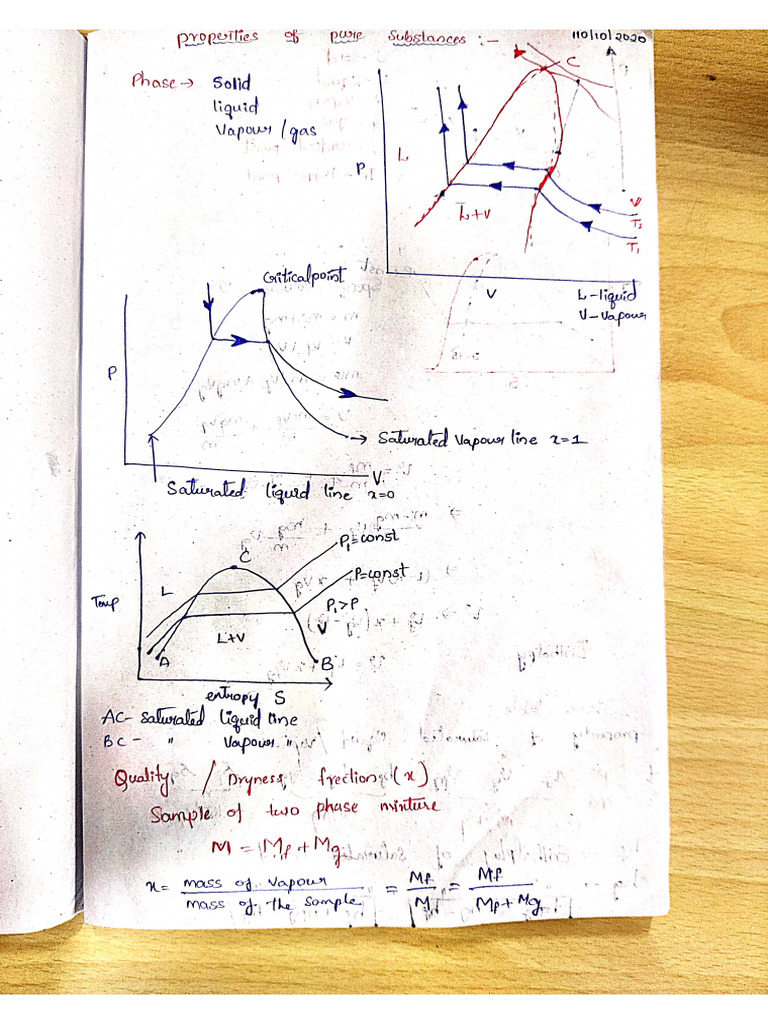 properties of pure substances :-
110/10/2020
Phase → Solid
liquid
Vapour/gas
C
P
L
L+V
V
T2
T1
V
L-liquid
V-Vapour
Critical point
P
→ Saturated Vapour line x=1
V
Saturated liquid line x=0
P1=const
C
P=const
L
Temp
P1>P
L+V
V
A
B
entropy S
AC- saturated liquid line
BC- " Vapour "
Quality / Dryness frection (x)
Sample of two phase mixture
M = Mf + Mg
x = mass of vapour / mass of the sample = Mf / M = Mf / Mf + Mg